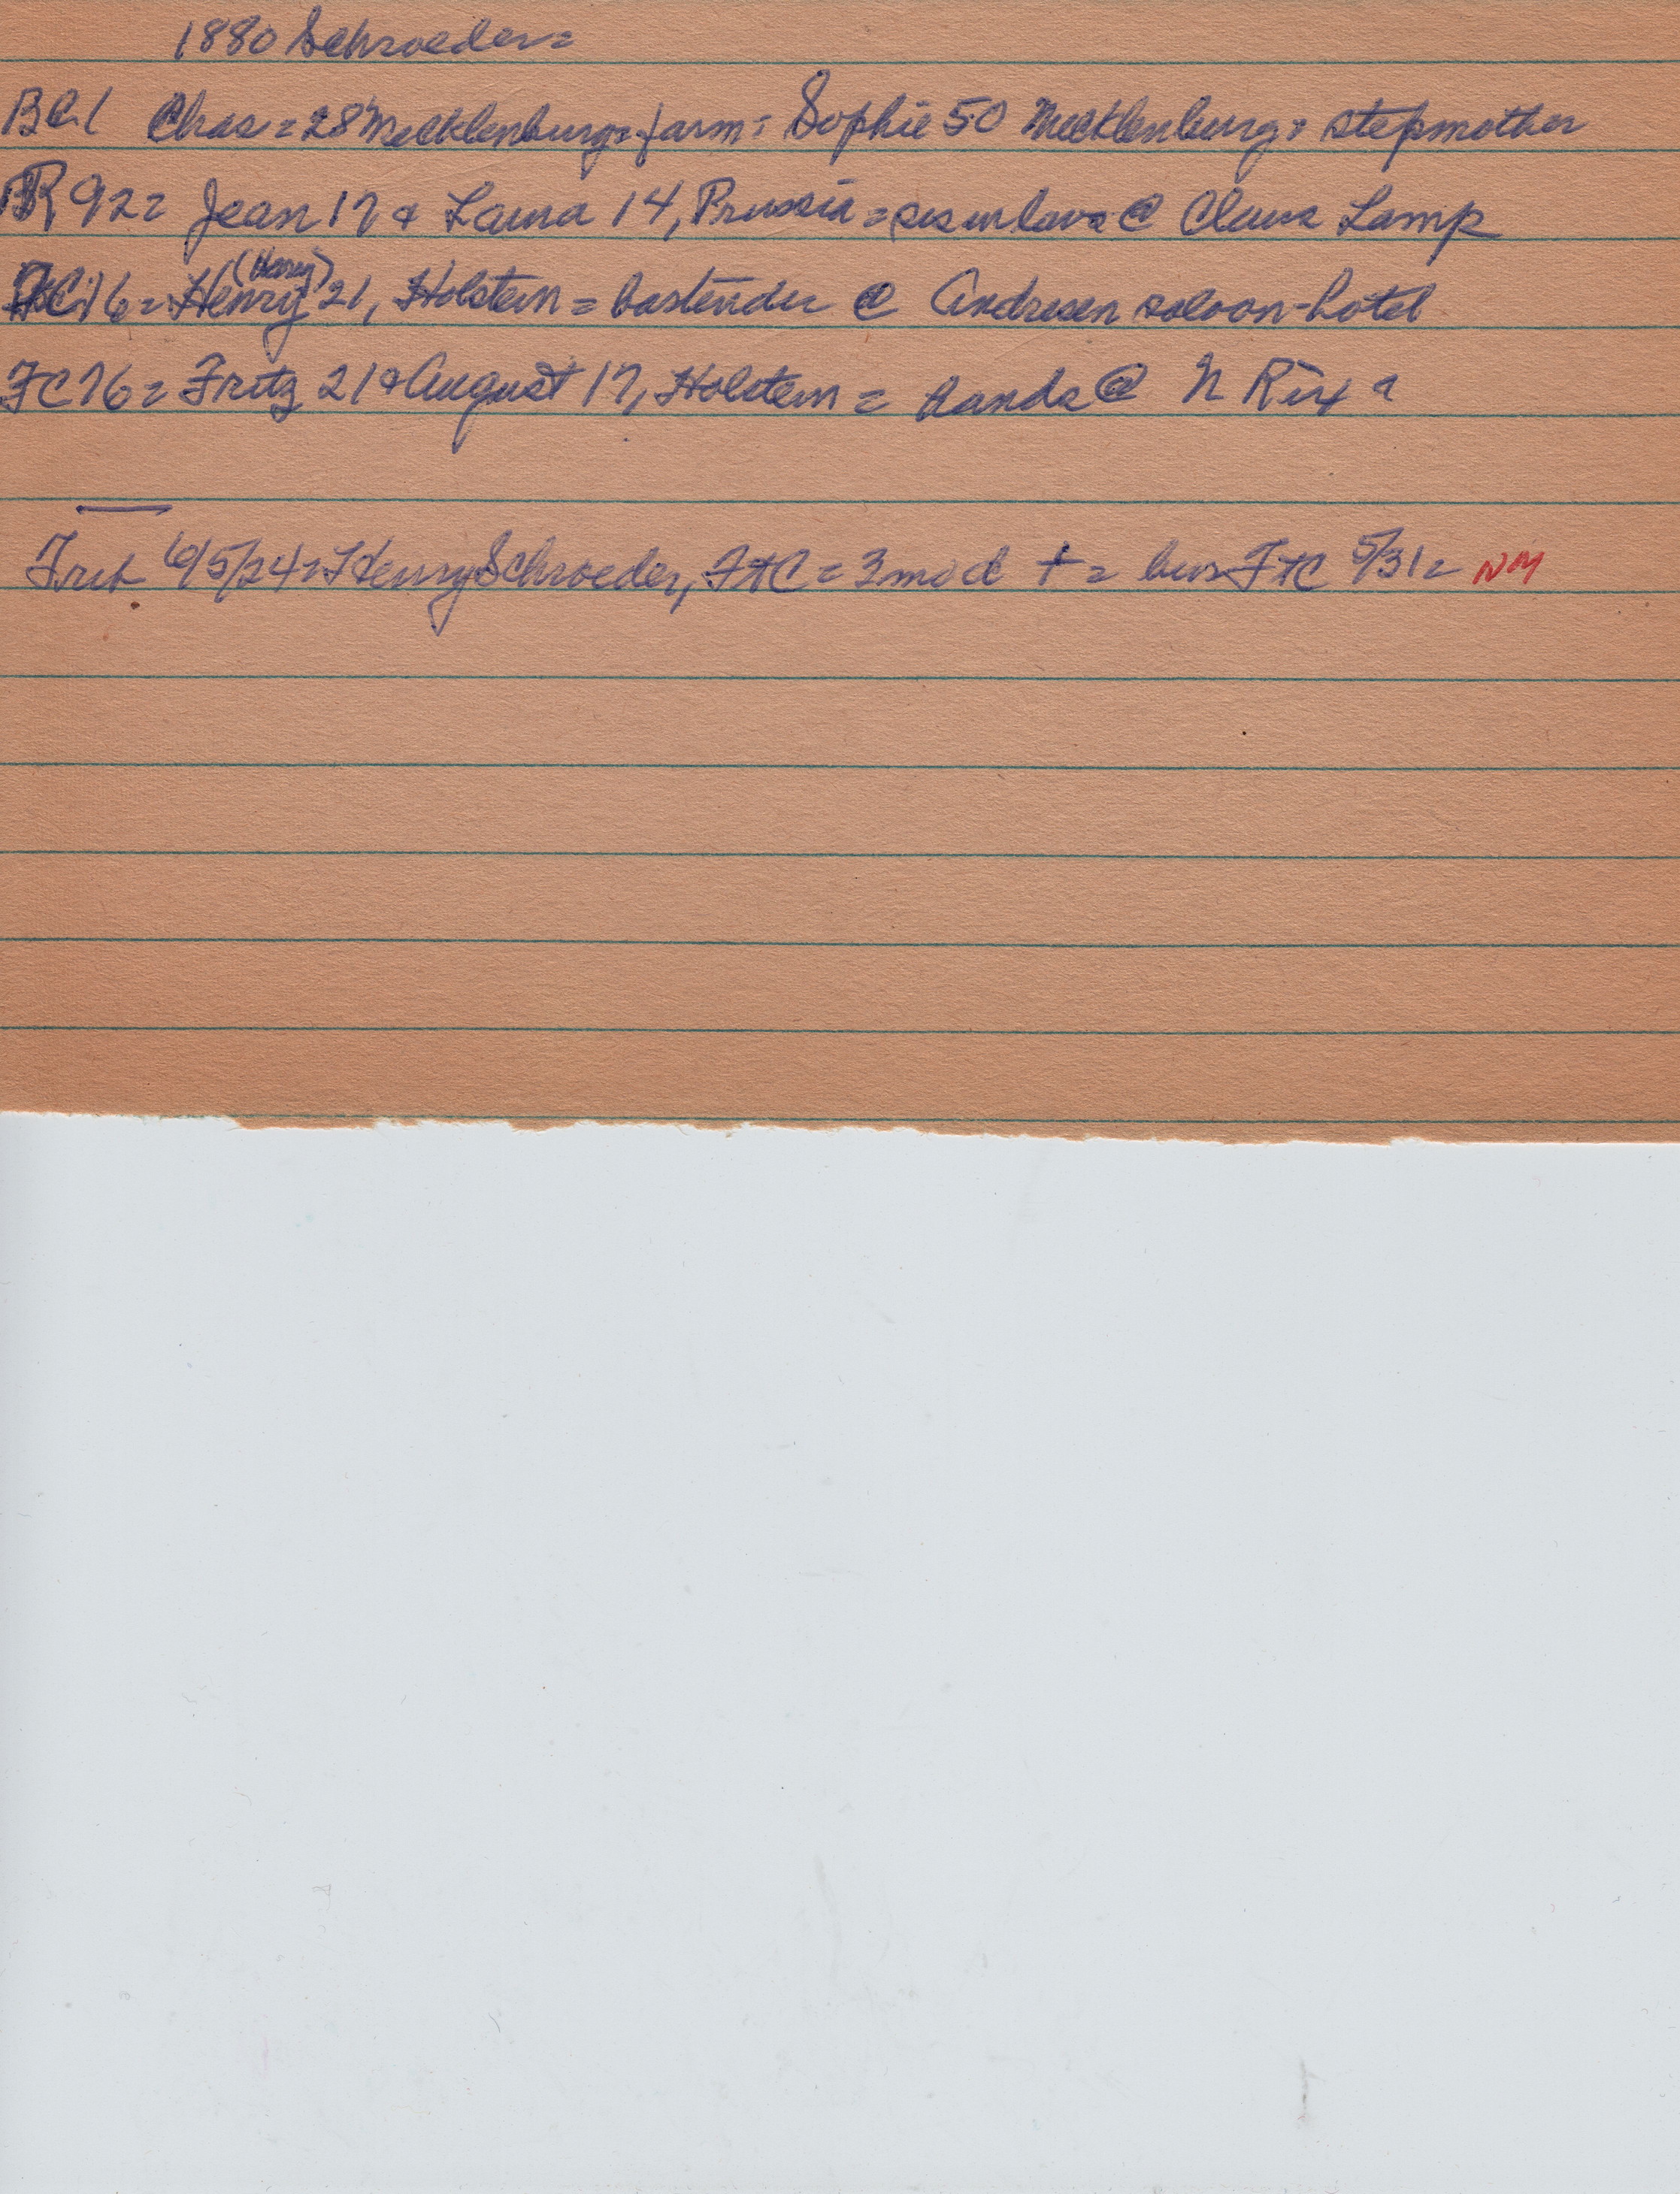 1880 Schroeder=
BC1 Chas = 28 Mecklenburg = farm = Sophie 50 Mecklenburg = stepmother
R 92 = Jean 17 & Laura 14, Prussia = sis in laws @ Claus Lamp
(Harry)
C 16 = Henry 21, Holstein = bartender @ Andresen saloon-hotel
FC 16 = Fritz 21 & August 17, Holstein = hands @ N Rix
6/5/24 = Henry Schroeder, FtC = 3 mo d + = bur FtC 5/31 = NM